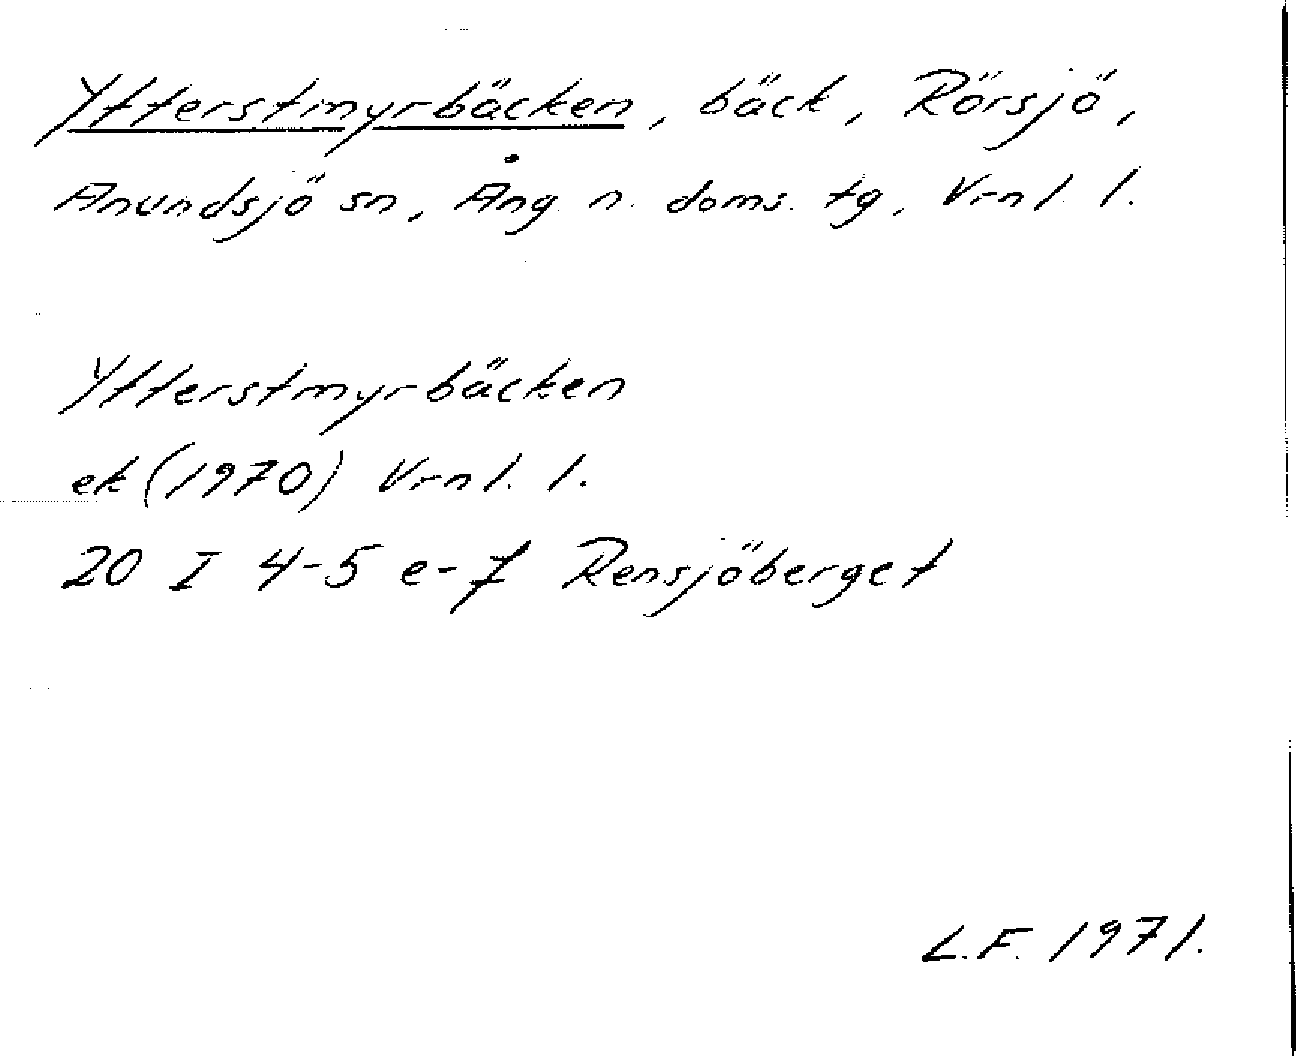 Ytterstmyrbäcken, bäck, Rörsjö,
Anundsjö sn, Ång n. doms. tg, Vrnl l.
Ytterstmyrbäcken
ek (1970) Vrnl. l.
20 I 4-5 e-f Rensjöberget
L.F. 1971.